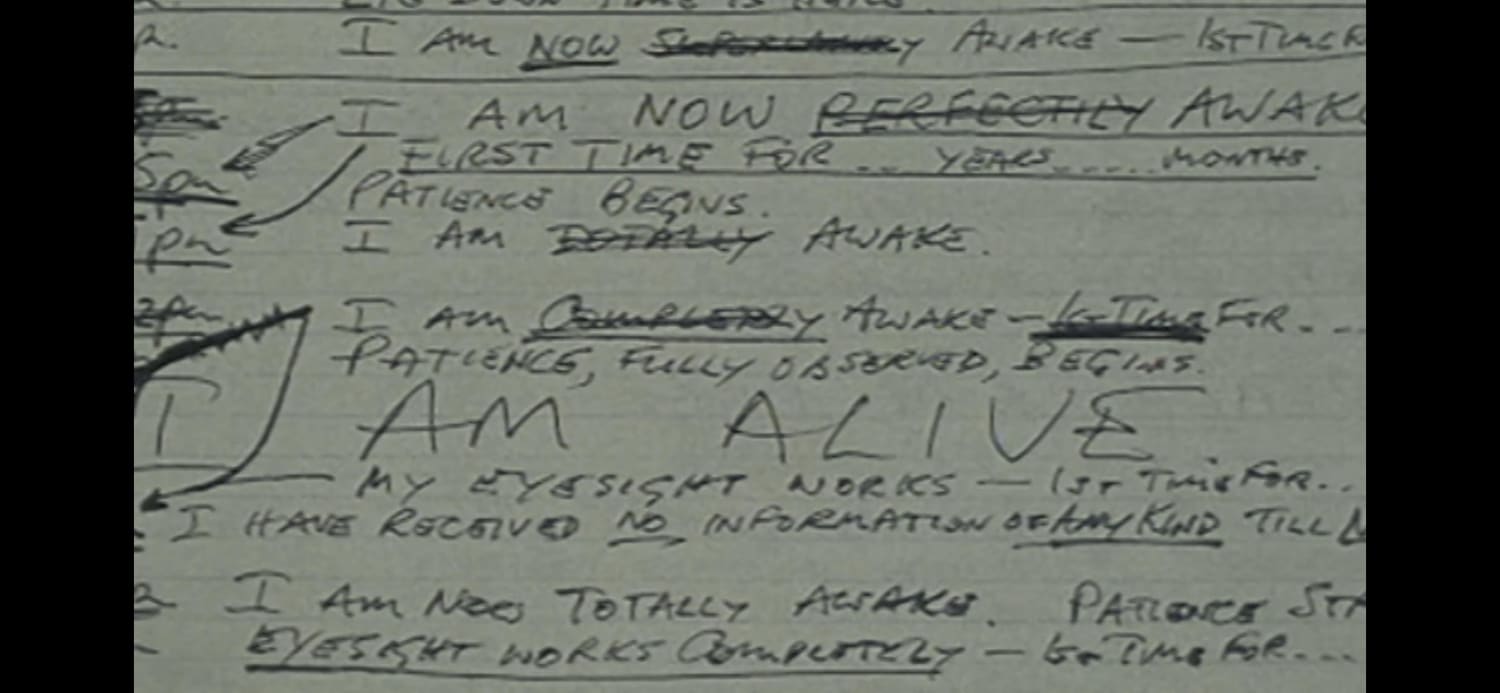 I AM NOW AWAKE — 1ST TIME F
I AM NOW PERFECTLY AWAK
FIRST TIME FOR ... YEARS ..... MONTHS.
5pm
PATIENCE BEGINS.
1pm I AM TOTALLY AWAKE.
2pm I AM COMPLETELY AWAKE — 1ST TIME FOR....
PATIENCE, FULLY OBSERVED, BEGINS.
I AM ALIVE
MY EYESIGHT WORKS — 1ST TIME FOR...
I HAVE RECEIVED NO INFORMATION OF ANY KIND TILL
I AM NOW TOTALLY AWAKE. PATIENCE STA
EYESIGHT WORKS COMPLETELY — 1ST TIME FOR....